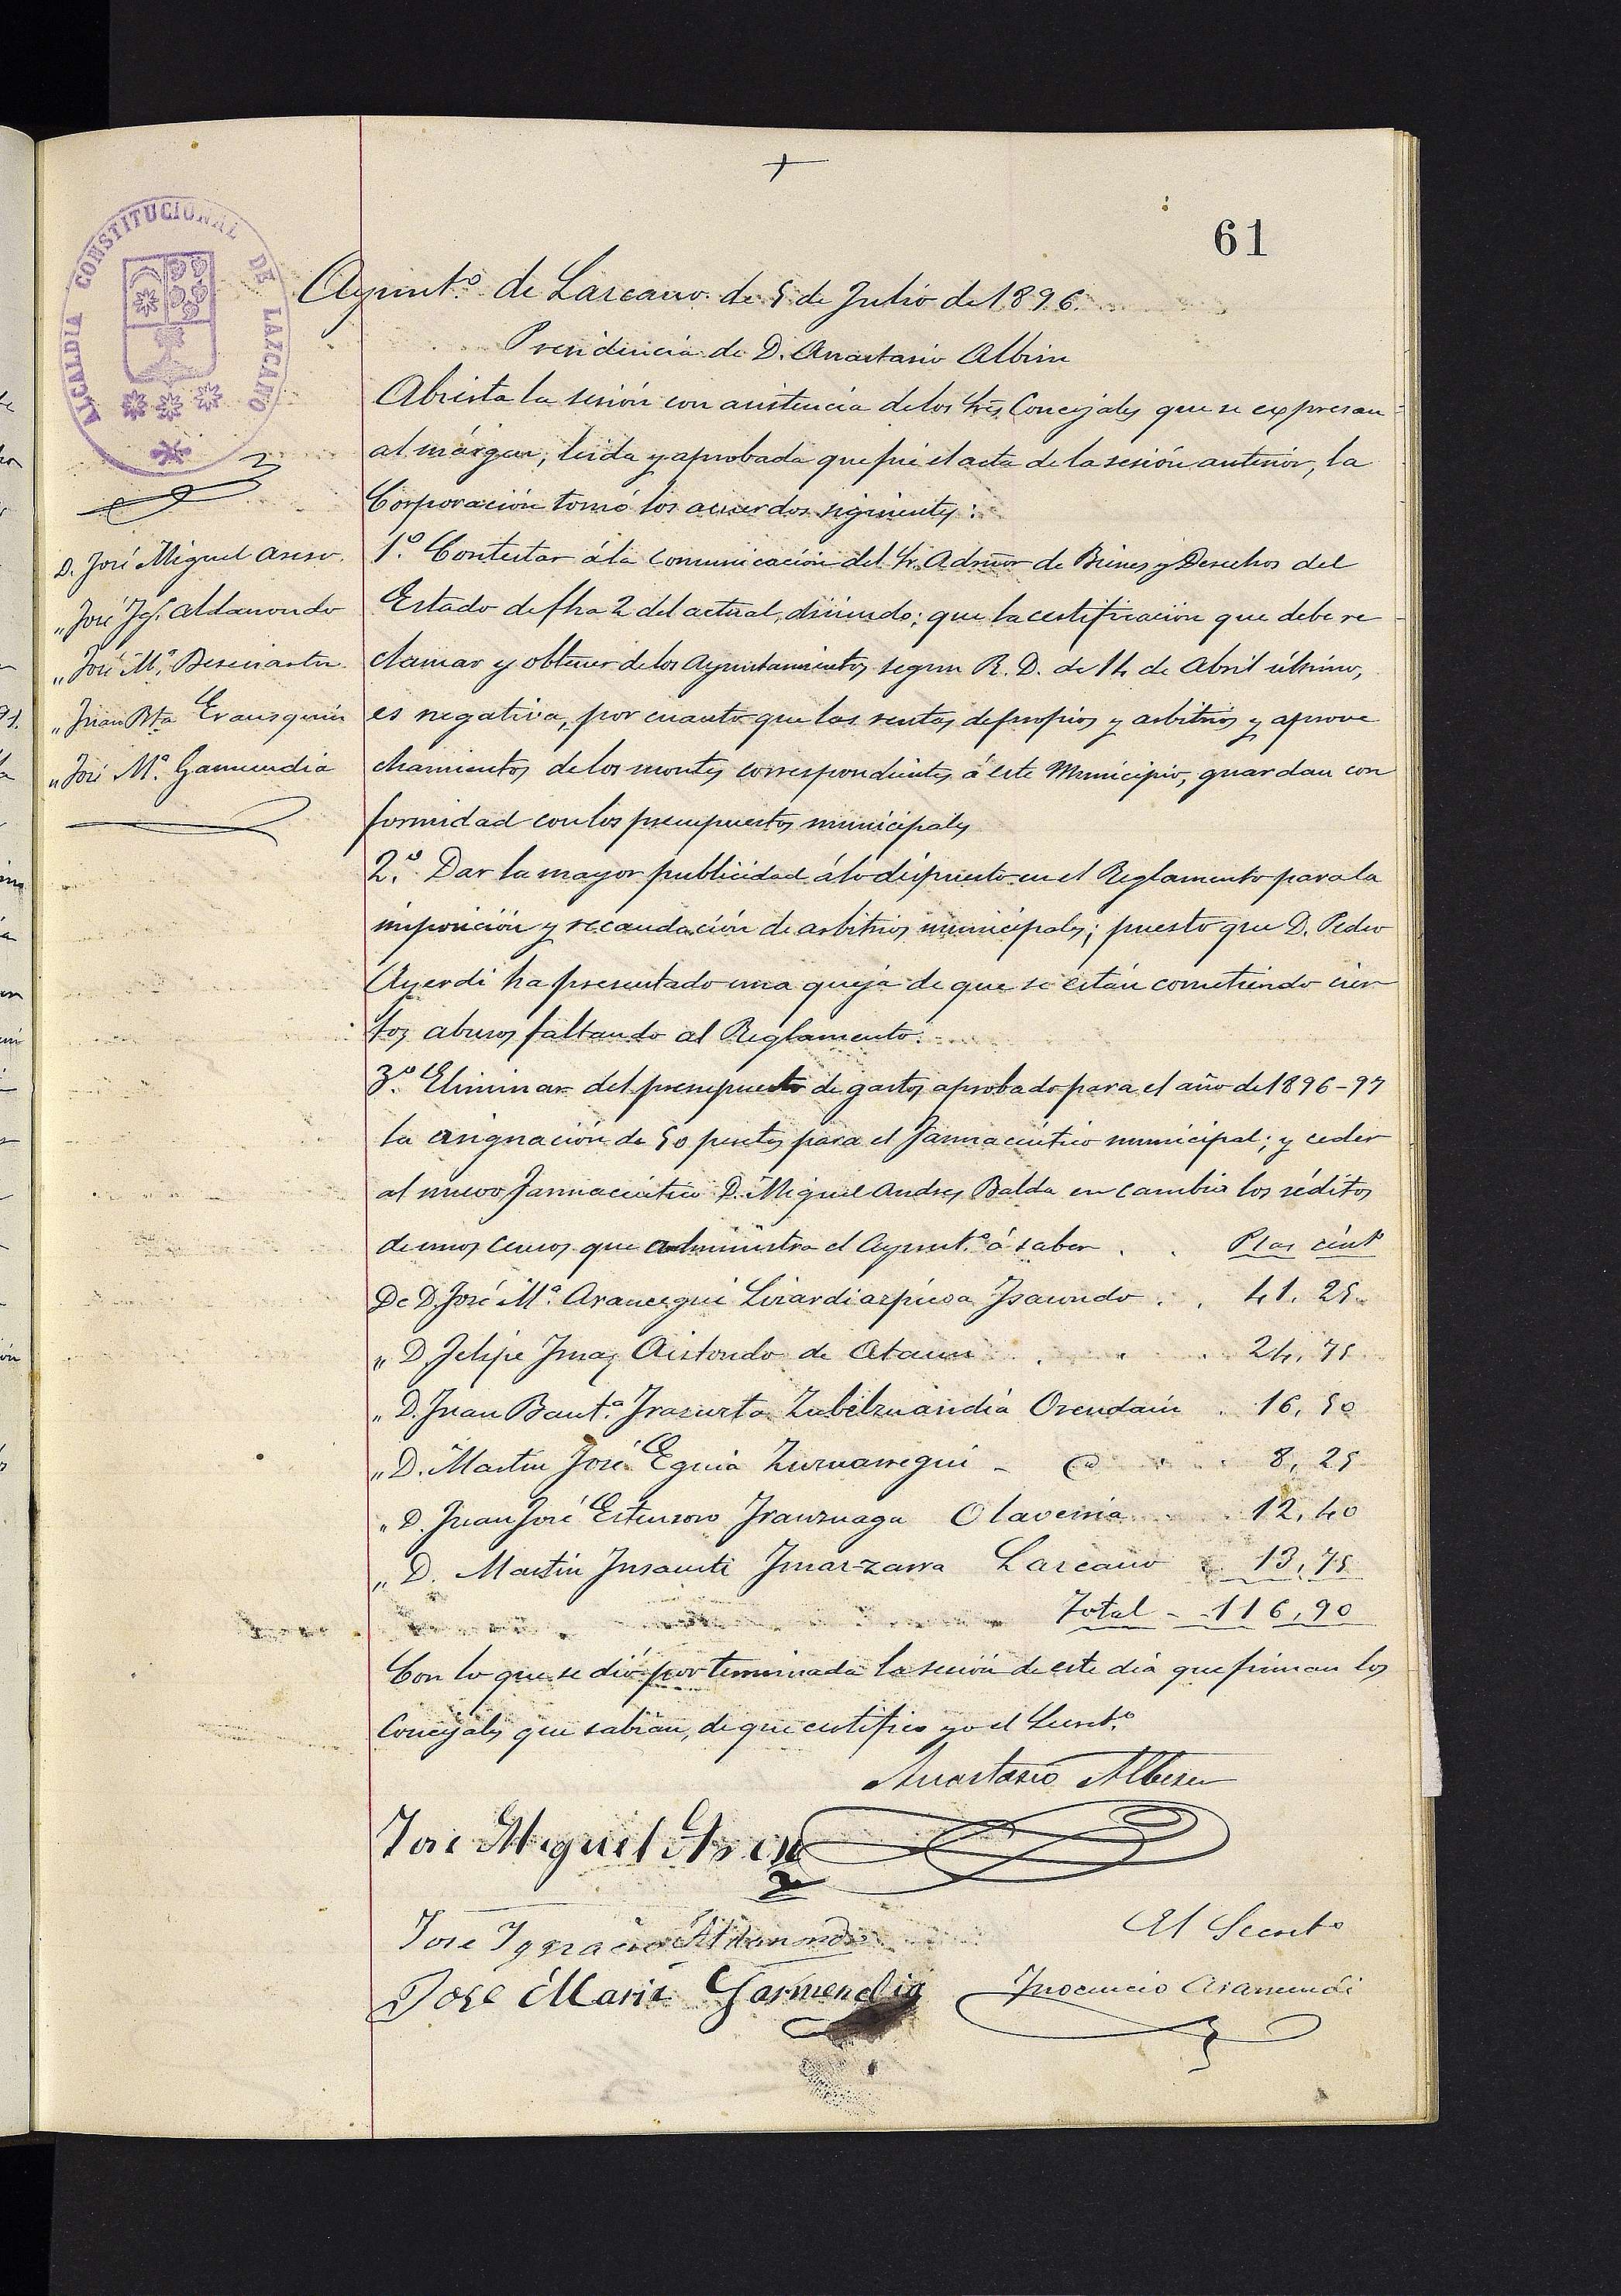 61
ALCALDIA CONSTITUCIONAL DE LAZCANO
Ayunt.º de Lazcano de 5 de Julio de 1896.
Presidencia de D. Anastasio Albisu
Abierta la sesión con asistencia de los Sres Concejales que se expresan
al márgen; leida y aprobada que fué el acta de la sesión anterior, la
Corporación tomó los acuerdos siguientes:
D. José Miguel Aseso.
„ José Igº. Aldanondo
„ José Mª. Beseiartu
„ Juan Bta Erausquin
„ José Mª. Garmendia
1.º Contestar á la comunicación del Sr. Admor de Bienes y Derechos del
Estado de fha 2 del actual, diciendo; que la certificación que debe re
clamar y obtener de los Ayuntamientos segun R. D. de 14 de Abril último,
es negativa, por cuanto que las rentas de propios y arbitrios y aprove
chamientos de los montes correspondientes á este Municipio, guardan con
formidad con los presupuestos municipales
2.º Dar la mayor publicidad á lo dispuesto en el Reglamento para la
imposición y recaudación de arbitrios municipales; puesto que D. Pedro
Ayerdi ha presentado una queja de que se están cometiendo cier
tos abusos faltando al Reglamento.
3.º Eliminar del presupuesto de gastos aprobado para el año de 1896-97
la asignación de 50 pesetas para el farmacéutico municipal; y ceder
al nuevo farmacéutico D. Miguel Andres Balda en cambio los réditos
de unos censos que administra el Ayunt.º á saber . . Ptas cént
De D. José Mª. Arancegui Lizardiazpicoa Isasondo . . 41,25
„ D. Felipe Imaz Aistondo de Ataun . . . 24,75
„ D. Juan Baut.ª Irazusta Zubelzuandia Orendain . 16,50
„ D. Martin José Eguia Zuruarregui - 8,25
„ D. Juan José Estensoro Irauzuaga Olaverria . 12,40
„ D. Martin Insausti Imaz-zarra Lazcano . 13,75
Total - - 116,90
Con lo que se dió por terminada la sesión de este dia que firman los
Concejales que sabian, de que certifico yo el Secret.º
Anastasio Albisu
José Miguel Aseso
José Ygnacio Aldanondo
El Secret.º
José Maria Garmendia
Inocencio Aramendi